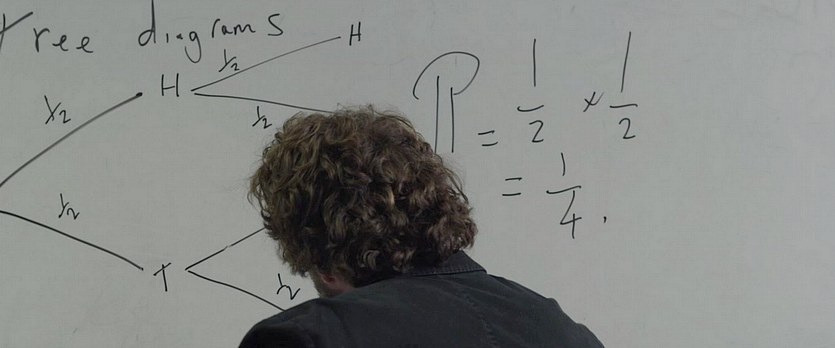 tree diagrams
1/2 H 1/2 H
1/2
1/2 T
1/2
ℙ = 1/2 × 1/2
= 1/4.